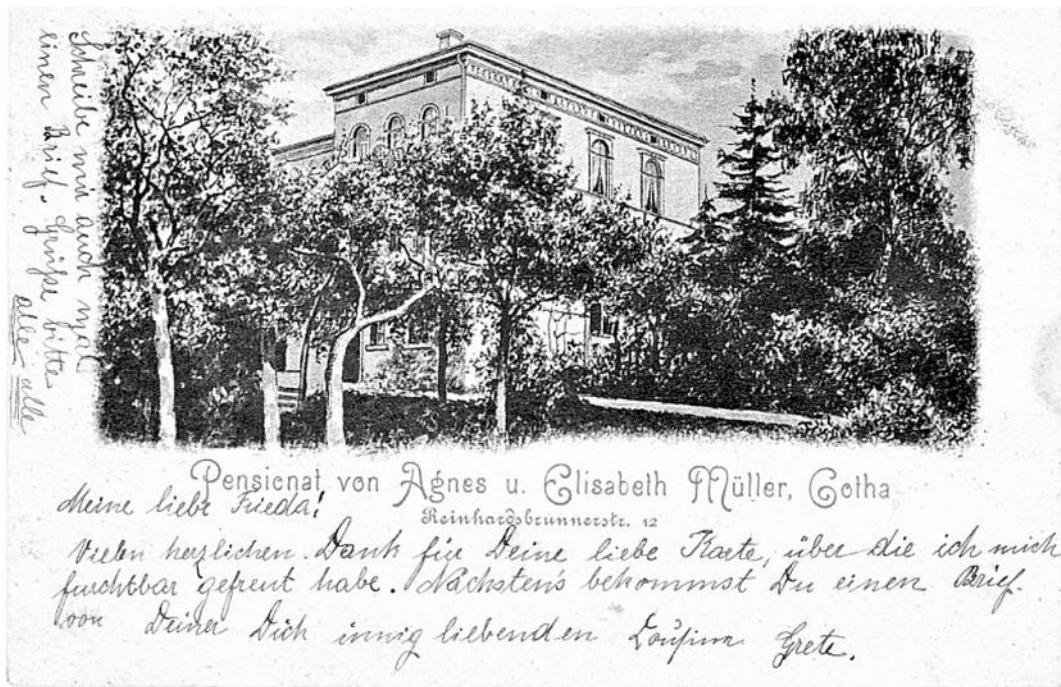 Schreibe mir auch mal
einen Brief. Grüsse bitte
alle alle
Pensionat von Agnes u. Elisabeth Müller, Gotha
Reinhardsbrunnerstr. 12
Meine liebe Frieda!
Vielen herzlichen Dank für Deine liebe Karte, über die ich mich
furchtbar gefreut habe. Nächstens bekommst Du einen Brief
von Deiner Dich innig liebenden Cousine Grete.